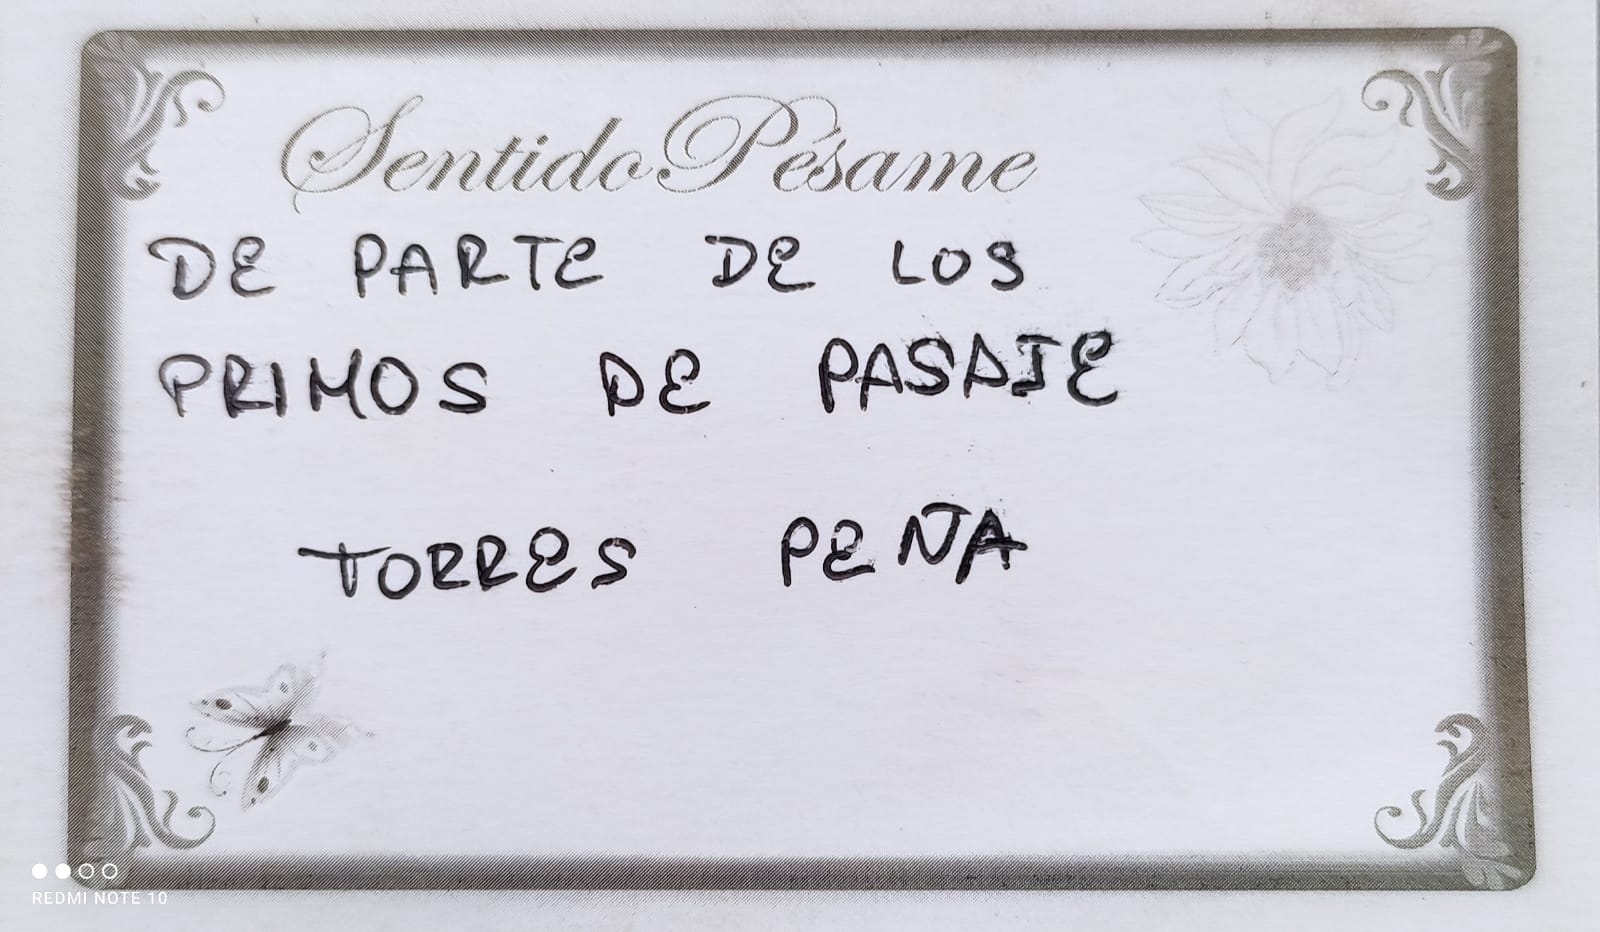 Sentido Pésame
DE PARTE DE LOS
PRIMOS DE PASAJE
TORRES PEÑA
REDMI NOTE 10